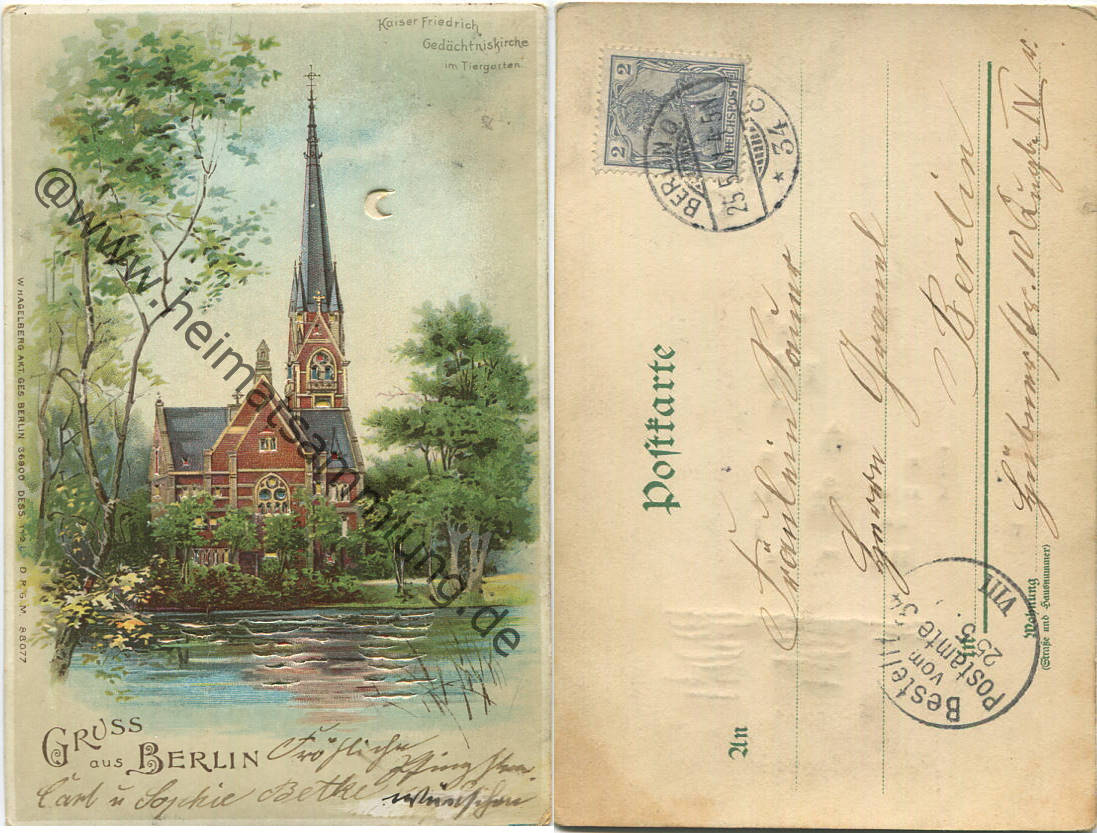 Kaiser Friedrich
Gedächtniskirche
im Tiergarten.
@www.heimatsammlung.de
W. HAGELBERG AKT. GES. BERLIN 36900 DESS. D.R.G.M. 88077
GRUSS
aus BERLIN
Fröhliche
Pfingsten
Carl u Sophie Betke
wünschen
2 REICHSPOST 2
BERLIN
25.5. 4-5N
* 34 c
Postkarte
An
Fräulein
Herrn
in
Berlin
Wohnung
(Straße und Hausnummer)
IV
Bestellt
vom
Postamte 34
25 5
VIII